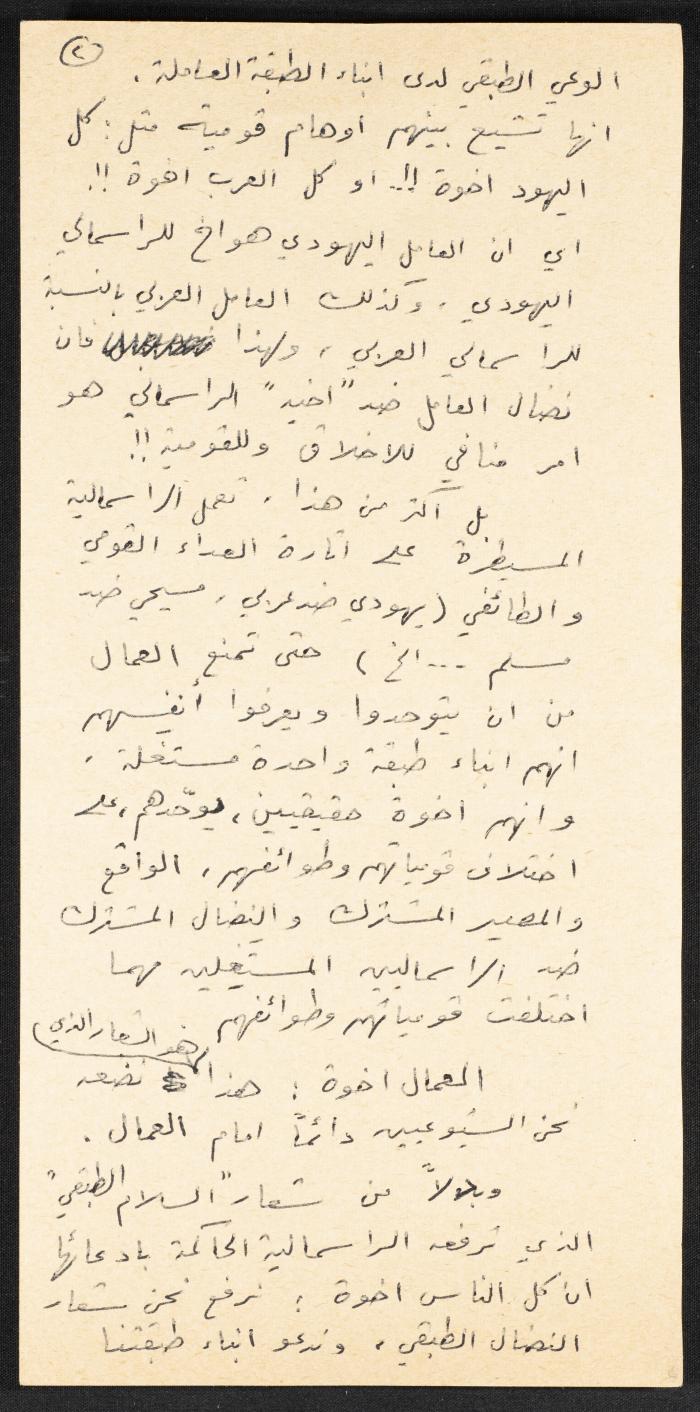 ٢
الوعي الطبقي لدى ابناء الطبقة العاملة.
انها تشيع بينهم اوهام قومية مثل: كل
اليهود اخوة!!.. او كل العرب اخوة!!
اي ان العامل اليهودي هو اخ للراسمالي
اليهودي، وكذلك العامل العربي بالنسبة
للراسمالي العربي، ولهذا فان
نضال العامل ضد "اخيه" الراسمالي هو
امر منافي للاخلاق وللقومية!!
بل اكثر من هذا، تعمل الراسمالية
المسيطرة على اثارة العداء القومي
والطائفي (يهودي ضد عربي، مسيحي ضد
مسلم ... الخ) حتى تمنع العمال
من ان يتوحدوا ويعرفوا أنفسهم
انهم ابناء طبقة واحدة مستغلة،
وانهم اخوة حقيقيين، يوحّدهم، على
اختلاف قومياتهم وطوائفهم، الواقع
والمصير المشترك والنضال المشترك
ضد الراسماليين المستغِلين مهما
اختلفت قومياتهم وطوائفهم
العمال اخوة: هذا هو الشعار الذي نضعه
نحن الشيوعيين دائماً امام العمال.
وبدلاً من شعار "السلام الطبقي"
الذي ترفعه الراسمالية الحاكمة بادعائها
ان كل الناس اخوة: نرفع نحن شعار
النضال الطبقي، وندعو ابناء طبقتنا